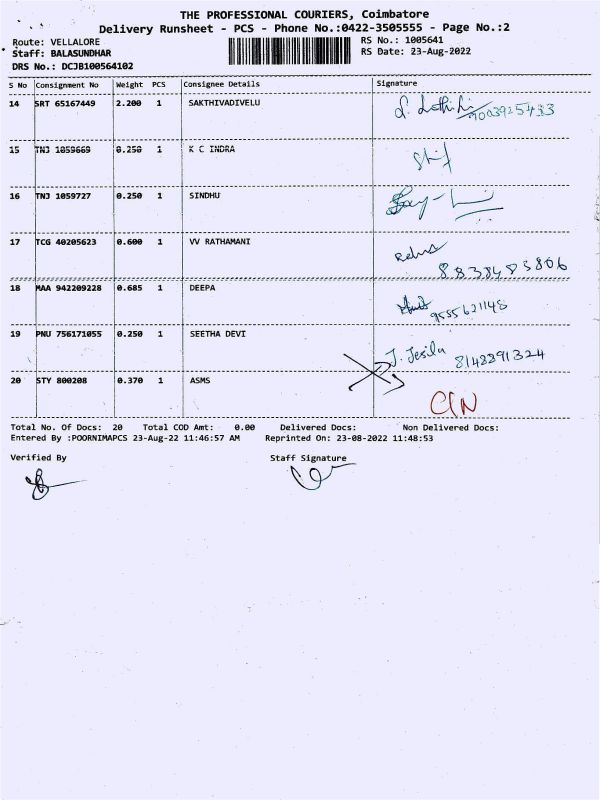 THE PROFESSIONAL COURIERS, Coimbatore
Delivery Runsheet - PCS - Phone No.:0422-3505555 - Page No.:2
Route: VELLALORE
RS No.: 1005641
Staff: BALASUNDHAR
RS Date: 23-Aug-2022
DRS No.: DCJB100564102
S No Consignment No Weight PCS Consignee Details Signature
14 SRT 65167449 2.200 1 SAKTHIVADIVELU 9003925433
15 TNJ 1059669 0.250 1 K C INDRA
16 TNJ 1059727 0.250 1 SINDHU
17 TCG 40205623 0.600 1 VV RATHAMANI
18 MAA 942209228 0.685 1 DEEPA 9555621148
19 PNU 756171055 0.250 1 SEETHA DEVI J. Jesila 8148891324
20 STY 800208 0.370 1 ASMS
Total No. Of Docs: 20 Total COD Amt: 0.00 Delivered Docs: Non Delivered Docs:
Entered By :POORNIMAPCS 23-Aug-22 11:46:57 AM Reprinted On: 23-08-2022 11:48:53
Verified By Staff Signature